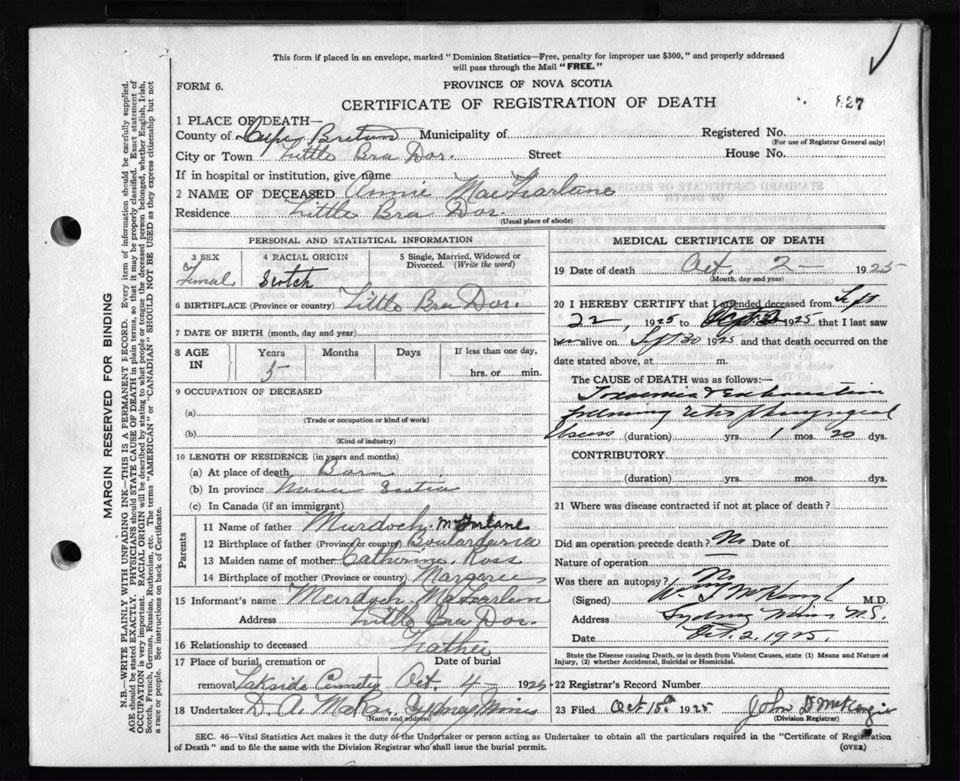 This form if placed in an envelope, marked "Dominion Statistics—Free, penalty for improper use $300," and properly addressed
will pass through the Mail "FREE."
FORM 6.
PROVINCE OF NOVA SCOTIA
CERTIFICATE OF REGISTRATION OF DEATH
827
1 PLACE OF DEATH—
County of Cape Breton Municipality of Registered No.
(For use of Registrar General only)
City or Town Little Bra Dor. Street House No.
If in hospital or institution, give name
2 NAME OF DECEASED Annie MacFarlane
Residence Little Bra Dor.
(Usual place of abode)
PERSONAL AND STATISTICAL INFORMATION
3 SEX 4 RACIAL ORIGIN 5 Single, Married, Widowed or
Divorced. (Write the word)
Femal Scotch
6 BIRTHPLACE (Province or country) Little Bra Dor.
7 DATE OF BIRTH (month, day and year)
8 AGE IN Years Months Days If less than one day,
5 hrs. or min.
9 OCCUPATION OF DECEASED
(a)
(Trade or occupation or kind of work)
(b)
(Kind of industry)
10 LENGTH OF RESIDENCE (in years and months)
(a) At place of death Born
(b) In province Nova Scotia
(c) In Canada (if an immigrant)
Parents
11 Name of father Murdoch McFarlane
12 Birthplace of father (Province or country) Boulardarie
13 Maiden name of mother Catherine Ross
14 Birthplace of mother (Province or country) Margaree
15 Informant's name Murdoch McFarlane
Address Little Bra Dor.
16 Relationship to deceased Father
17 Place of burial, cremation or Date of burial
removal Lakside Cemetery Oct. 4— 1925
18 Undertaker D. A. McKay Sydney Mines
(Name and address)
MEDICAL CERTIFICATE OF DEATH
19 Date of death Oct. 2— 1925
(Month, day and year)
20 I HEREBY CERTIFY that I attended deceased from Sept
22, 1925 to Oct 2 1925, that I last saw
her alive on Sept 30 1925 and that death occurred on the
date stated above, at m.
The CAUSE OF DEATH was as follows:—
Toxaemia & Exhaustion
following retro pharyngeal
abscess (duration) yrs. 1 mos. 20 dys.
CONTRIBUTORY
(duration) yrs. mos. dys.
21 Where was disease contracted if not at place of death?
Did an operation precede death? No Date of
Nature of operation
Was there an autopsy? No
(Signed) M.D.
Address Sydney Mines N.S.
Date Oct. 2, 1925.
State the Disease causing Death, or in death from Violent Causes, state (1) Means and Nature of
Injury, (2) whether Accidental, Suicidal or Homicidal.
22 Registrar's Record Number
23 Filed Oct 15th 1925 John D McKenzie
(Division Registrar)
SEC. 46—Vital Statistics Act makes it the duty of the Undertaker or person acting as Undertaker to obtain all the particulars required in the "Certificate of Registration
of Death" and to file the same with the Division Registrar who shall issue the burial permit.
(OVER)
MARGIN RESERVED FOR BINDING
N.B.—WRITE PLAINLY WITH UNFADING INK—THIS IS A PERMANENT RECORD. Every item of information should be carefully supplied.
AGE should be stated EXACTLY. PHYSICIANS should STATE CAUSE OF DEATH in plain terms, so that it may be properly classified. Exact statement of
OCCUPATION is very important. RACIAL ORIGIN will be described by stating to what people or tongue the deceased person belonged, whether English, Irish,
Scotch, French, German, Russian, Ruthenian, etc. The terms "AMERICAN" or "CANADIAN" SHOULD NOT BE USED as they express citizenship but not
a race or people. See instructions on back of Certificate.